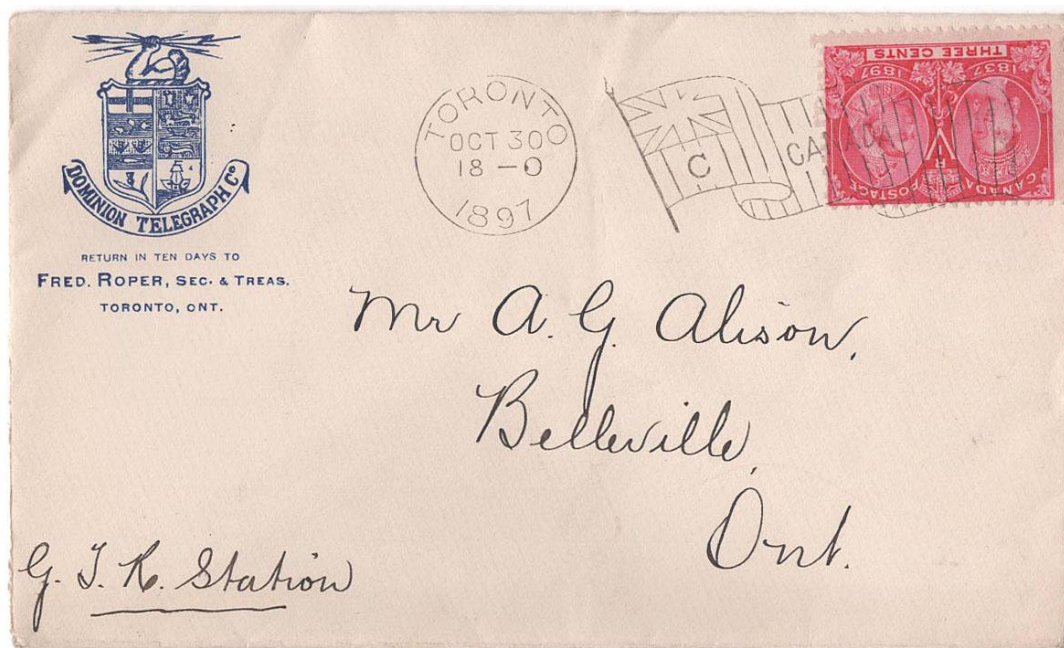 DOMINION TELEGRAPH Co
RETURN IN TEN DAYS TO
FRED. ROPER, SEC. & TREAS.
TORONTO, ONT.
TORONTO
OCT 30
18 - 0
1897
C
CANADA
THREE CENTS
1837 1897
CANADA POSTAGE
Mr A. G. Alison,
Belleville,
Ont.
G. T. R. Station